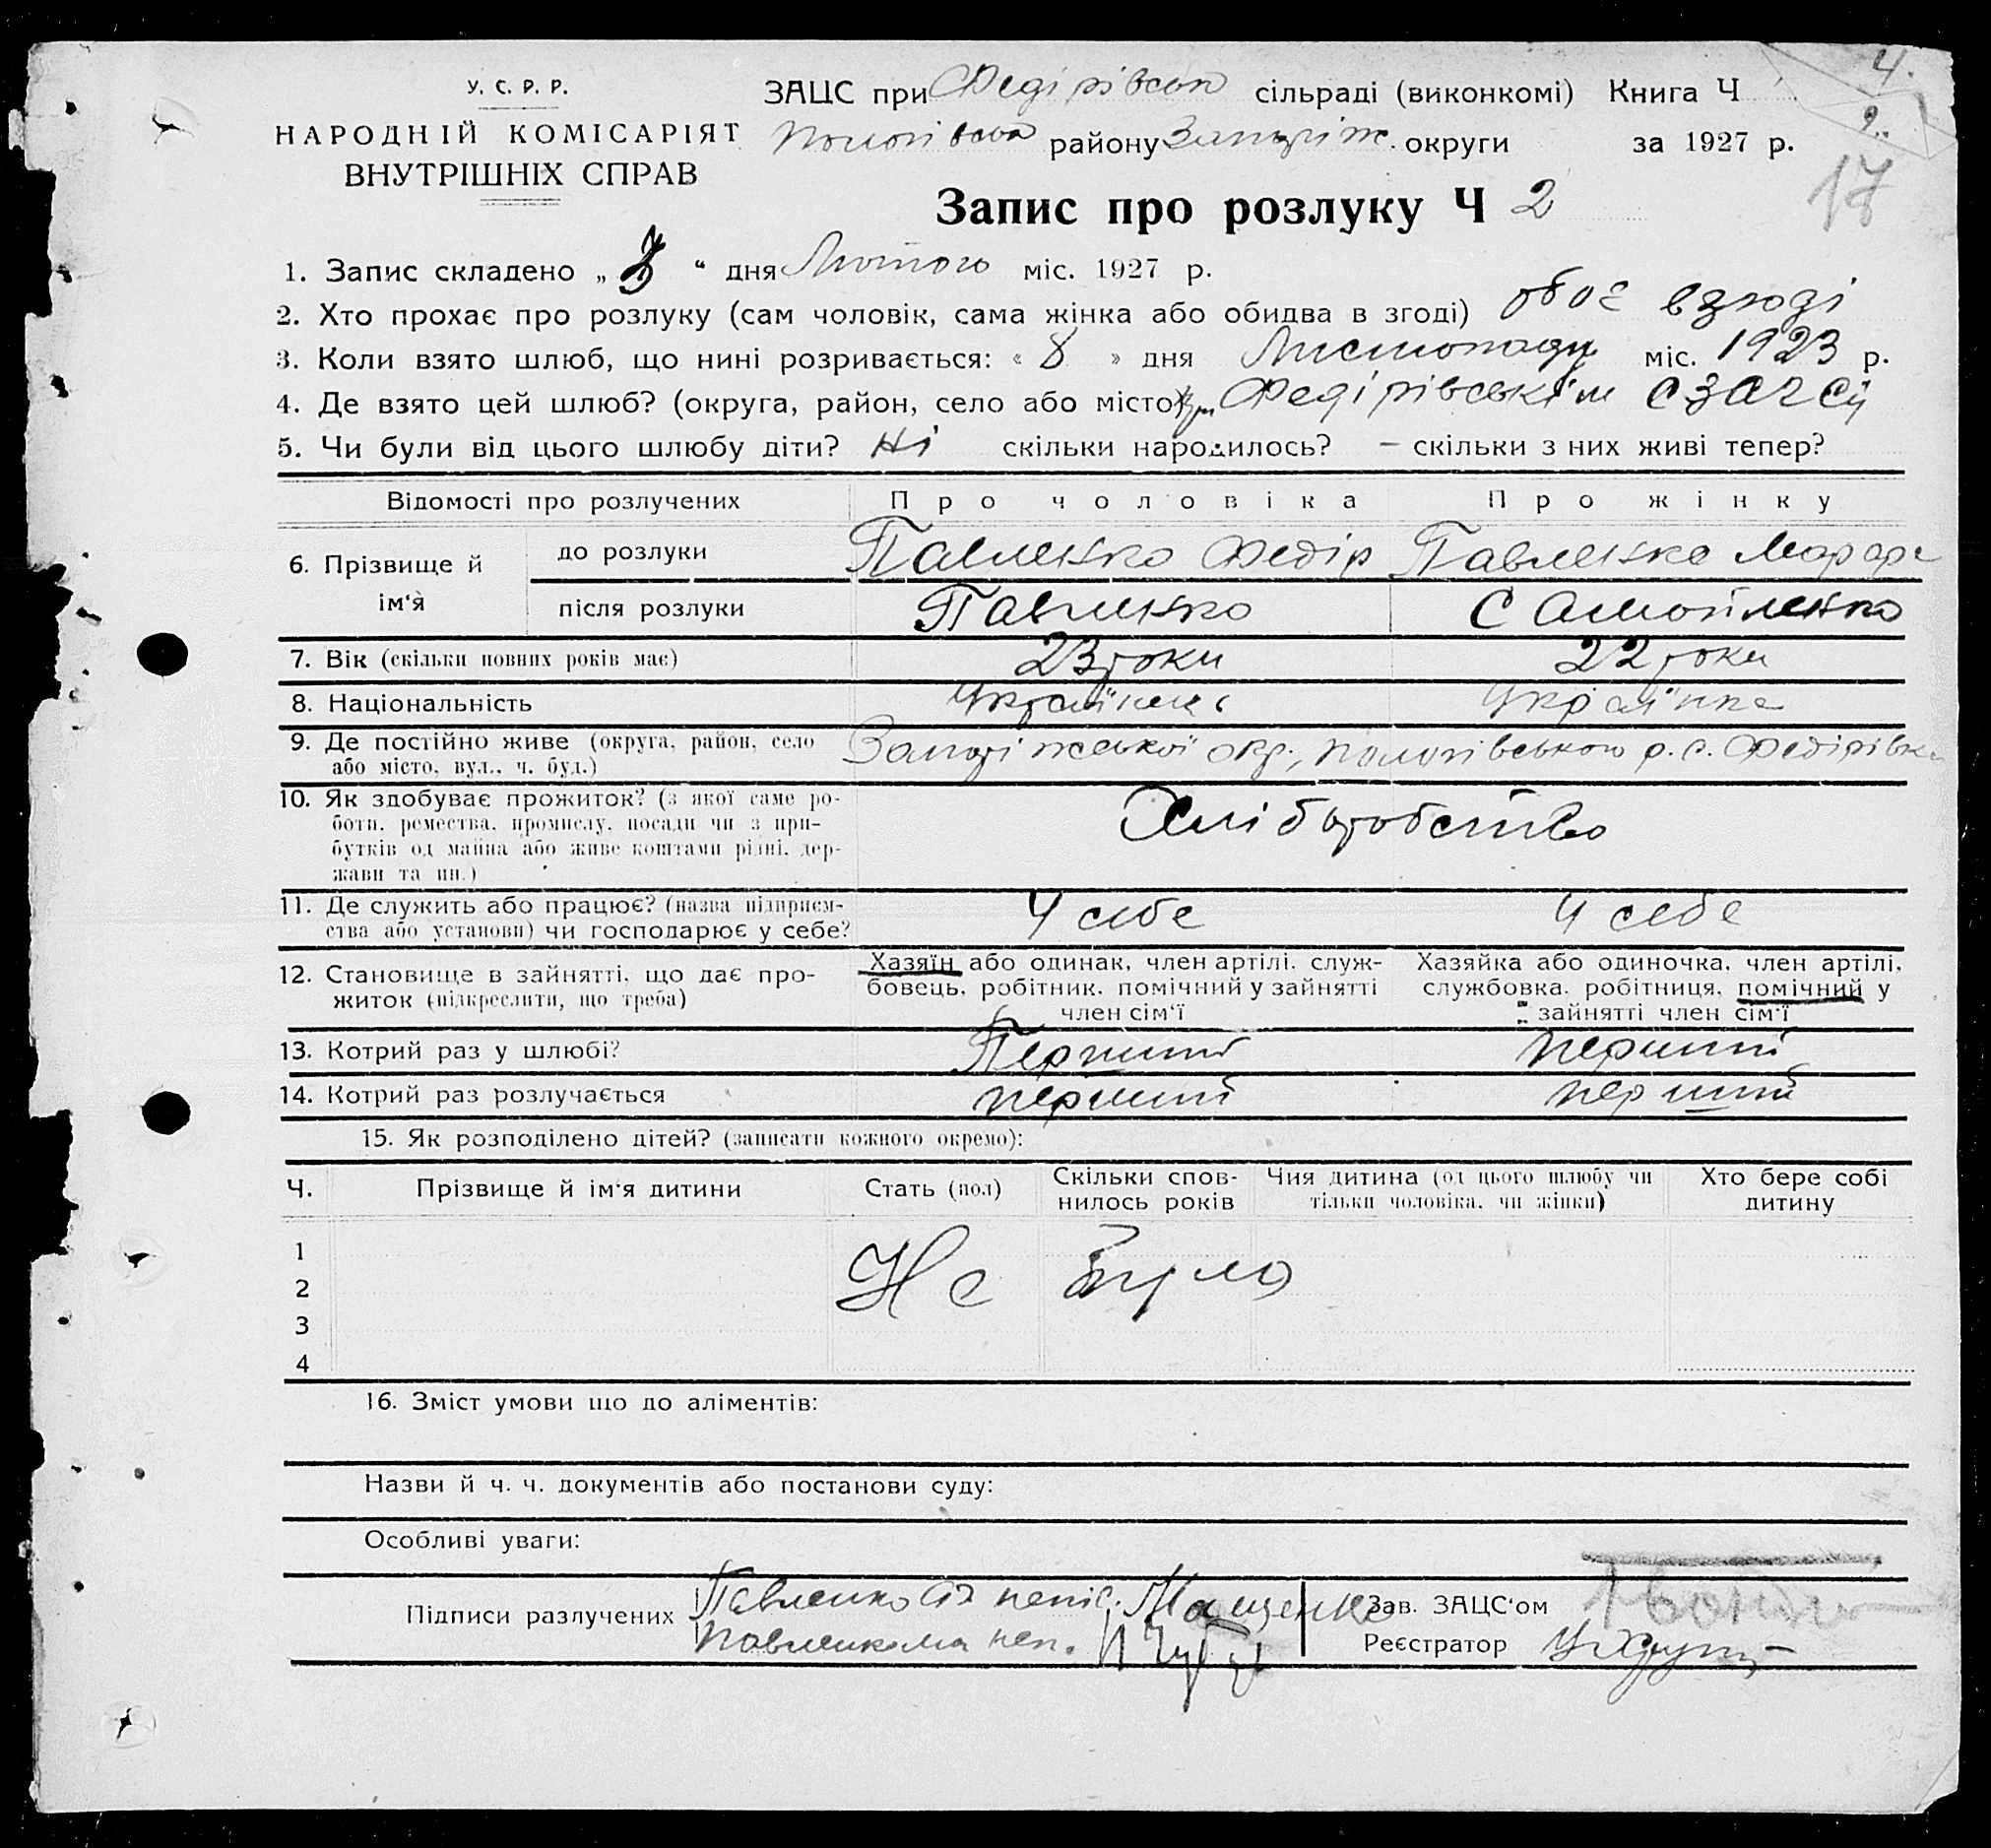 У. С. Р. Р.
НАРОДНІЙ КОМІСАРІЯТ
ВНУТРІШНІХ СПРАВ
ЗАЦС при Федірівськ сільраді (виконкомі) Книга Ч
Пологівськ району Запоріж. округи за 1927 р.
4.
9.
17
Запис про розлуку Ч 2
1. Запис складено „ “ дня Лютого міс. 1927 р.
2. Хто прохає про розлуку (сам чоловік, сама жінка або обидва в згоді) обоє в згоді
3. Коли взято шлюб, що нині розривається: « 8 » дня Листопаду міс. 1923 р.
4. Де взято цей шлюб? (округа, район, село або місто) при Федірівськім СЗАГСі
5. Чи були від цього шлюбу діти? Ні скільки народилось? — скільки з них живі тепер?
Відомості про розлучених Про чоловіка Про жінку
6. Прізвище й ім‘я до розлуки Павленко Федір Павленко Марфа
після розлуки Павленко Самойленко
7. Вік (скільки повних років має) 23 роки 22 роки
8. Національність Українець Українка
9. Де постійно живе (округа, район, село або місто, вул., ч. буд.) Запоріжської окр., Пологівського р. с. Федірівка
10. Як здобуває прожиток? (з якої саме роботи, ремества, промислу, посади чи з прибутків од майна або живе коштами рідні, держави та ин.) Хліборобство
11. Де служить або працює? (назва підприємства або установи) чи господарює у себе? У себе У себе
12. Становище в зайнятті, що дає прожиток (підкреслити, що треба) Хазяїн або одинак, член артілі, службовець, робітник, помічний у зайнятті член сім‘ї Хазяйка або одиночка, член артілі, службовка, робітниця, помічний у зайнятті член сім‘ї
13. Котрий раз у шлюбі? Перший перший
14. Котрий раз розлучається перший перший
15. Як розподілено дітей? (записати кожного окремо):
Ч. Прізвище й ім‘я дитини Стать (пол) Скільки сповнилось років Чия дитина (од цього шлюбу чи тільки чоловіка, чи жінки) Хто бере собі дитину
1
2 Не було
3
4
16. Зміст умови що до аліментів:
Назви й ч. ч. документів або постанови суду:
Особливі уваги:
Підписи разлучених Павленко непис. Мащенко Зав. ЗАЦС‘ом
Павленкома неп. Реєстратор